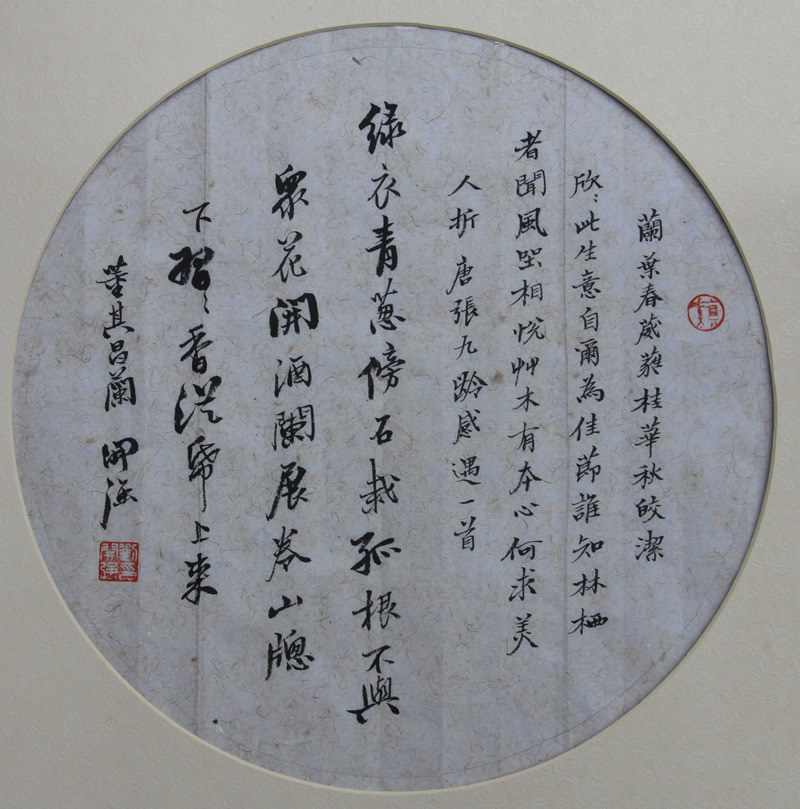 蘭葉春葳蕤桂華秋皎潔
欣〻此生意自爾為佳節誰知林栖
者聞風坐相悅艸木有本心何求美
人折 唐張九齡感遇一首
綠衣青蔥傍石栽孤根不與
眾花開酒闌展卷山牕
下習〻香從紙上來
董其昌蘭 開強
劉開強印